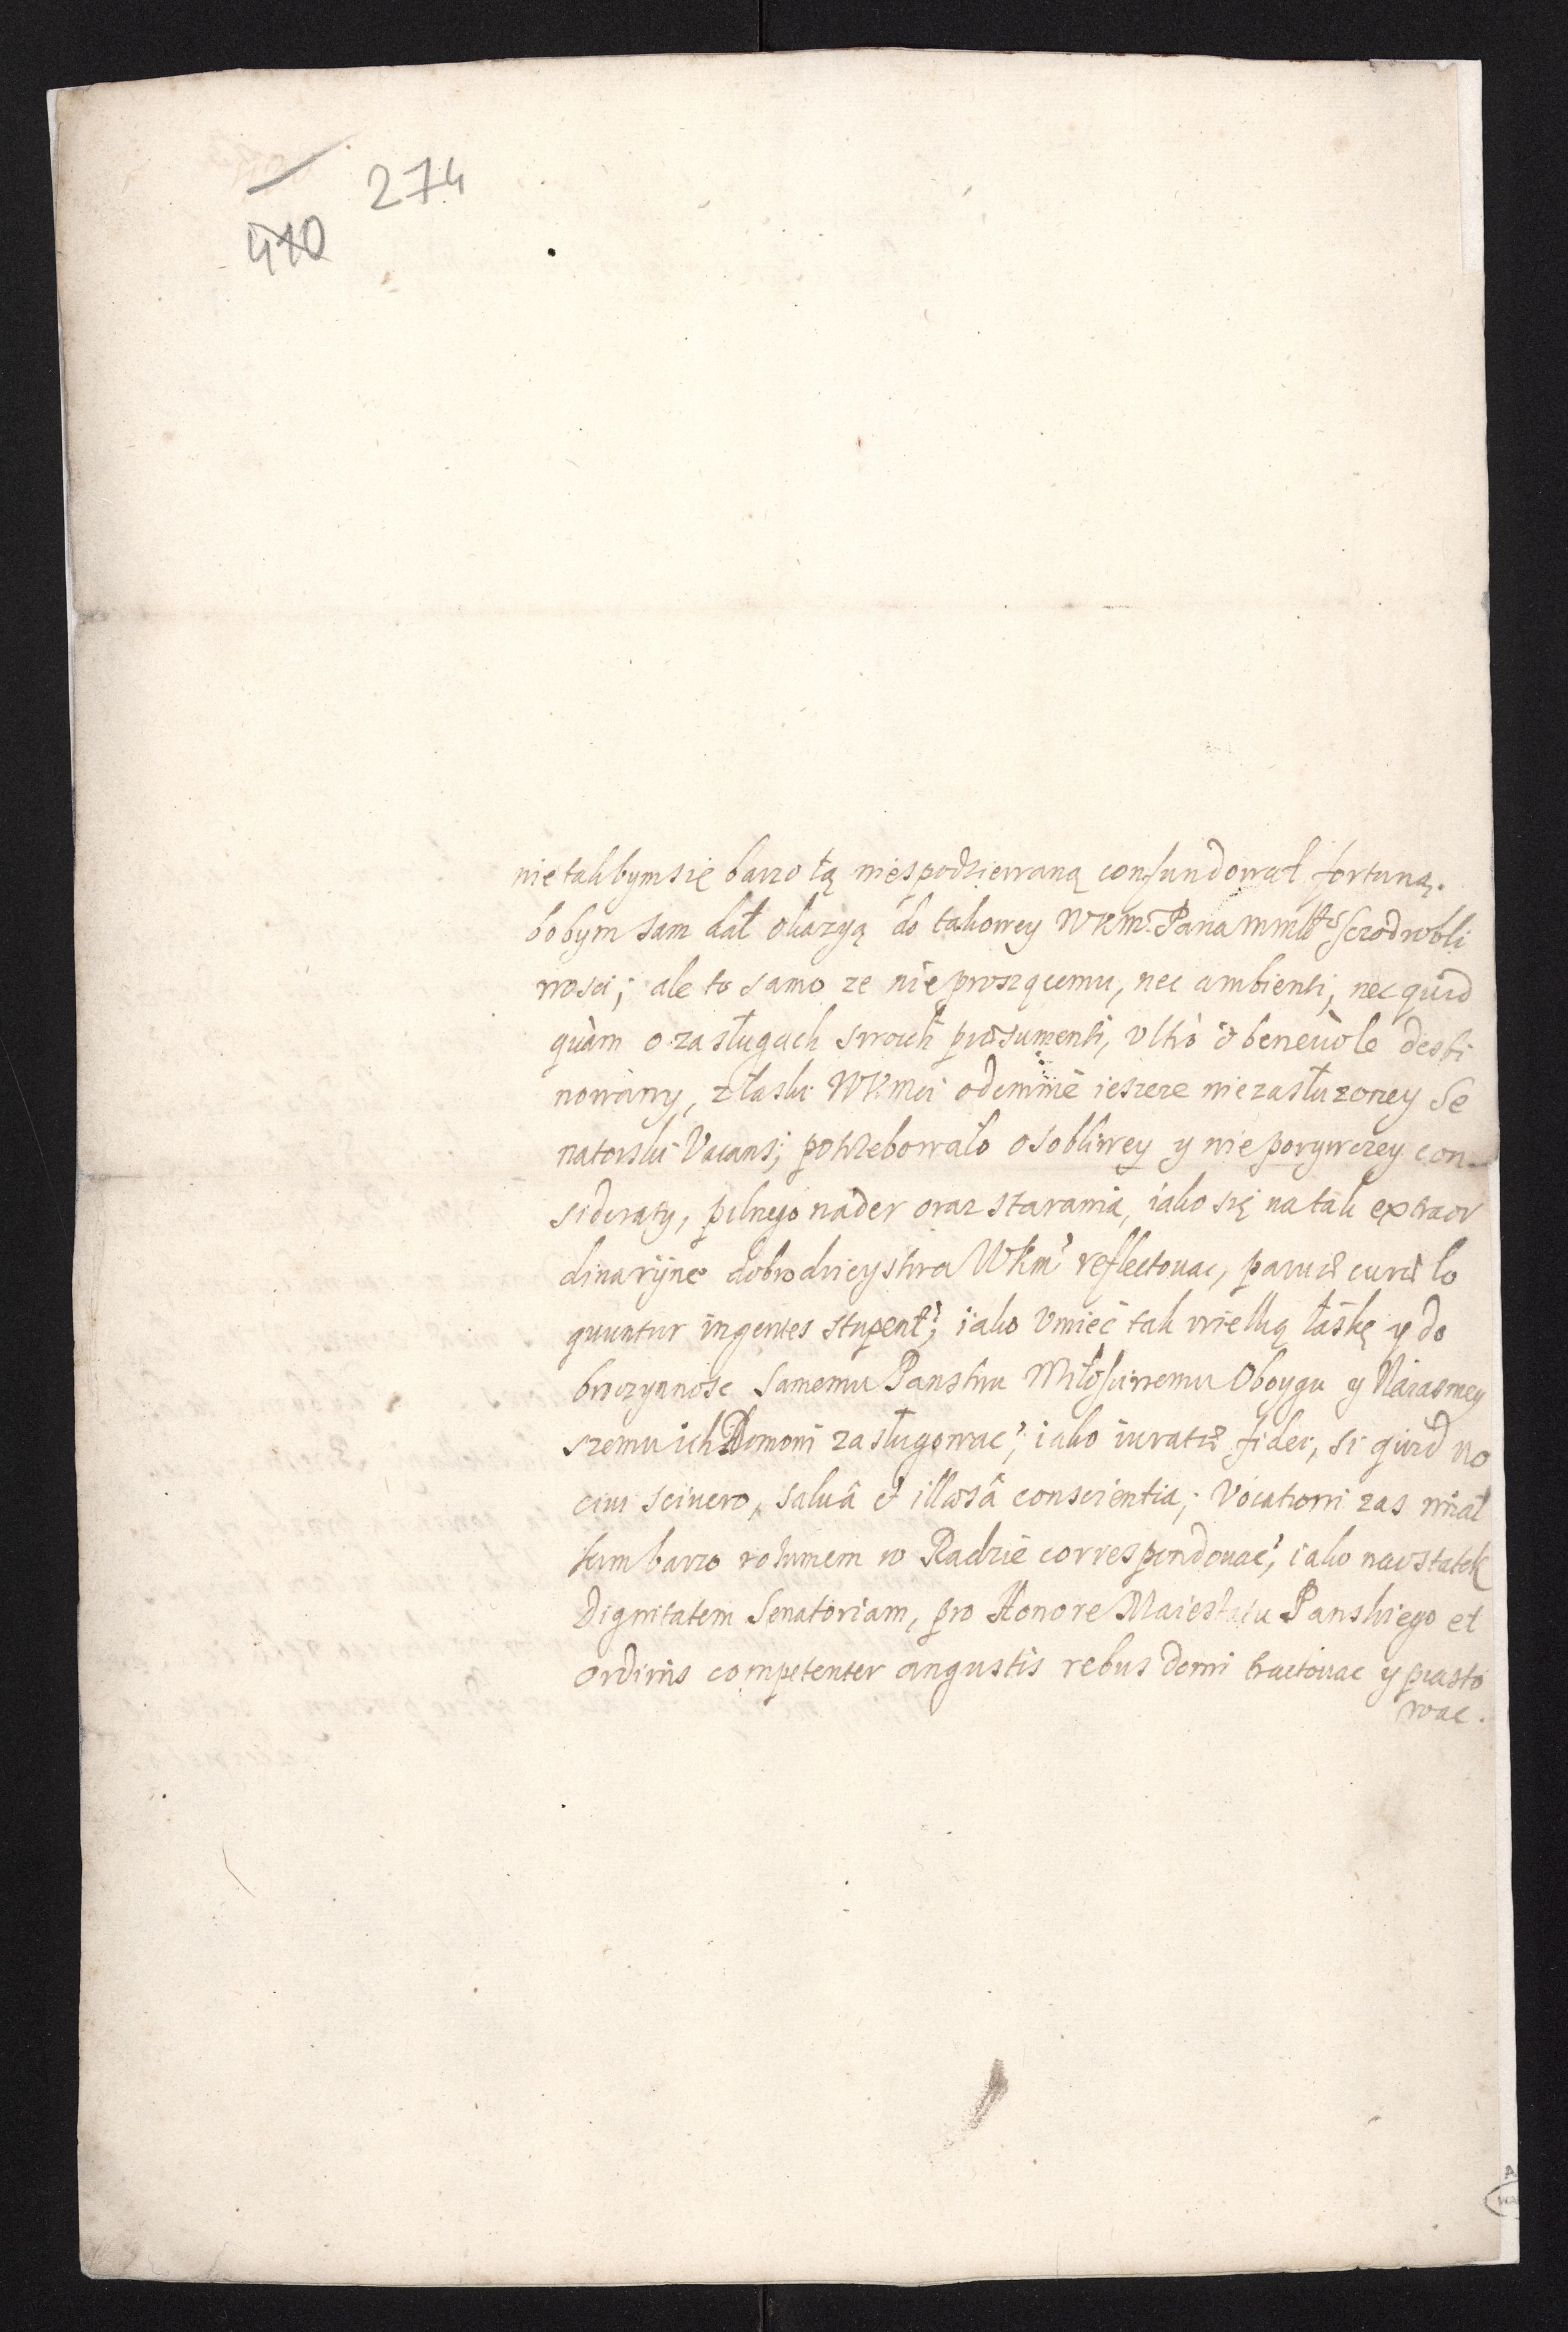 274
410
nie takbym się barzo tą niespodziewaną confundował fortuną.
bobym sam dał okazyą do takowey WKMci Pana mmłśc̃ Sczodrobli
wosci; ale to samo ze nieproszącemu, nec ambienti, nec quid
quàm o zasługach swoich præsumenti, vltrò & beneuòle desti
nowany, z łaski WKMci odemnie ieszcze niezasłuzoney Se
natorski Vacans; potrzebowało osobliwey y nieporywczey con-
sideraty, pilnego náder oraz starania, iako się na tak extraor
dinaryine dobrodzieystwa WKm̃ reflectouac, paruæ curæ lo
quuntur ingentes stupent; iako Vmieć tak wielką łáskę y do
broczynnosc samemu Panstwu Miłosciwemu Oboygu y Náiasniey
szemu ich Domowi zasługowac; iako iuratæ fidei, si quid no
ciui sciuero, saluâ & illæsâ conscientia; Vocationi zas miał
kim barzo rozumem w Radzie correspondouac; iako naostatek
Dignitatem Senatoriam, pro Honore Maiestatu Panskiego et
Ordinis competenter angustis rebus domi tractouac y piasto
wac.